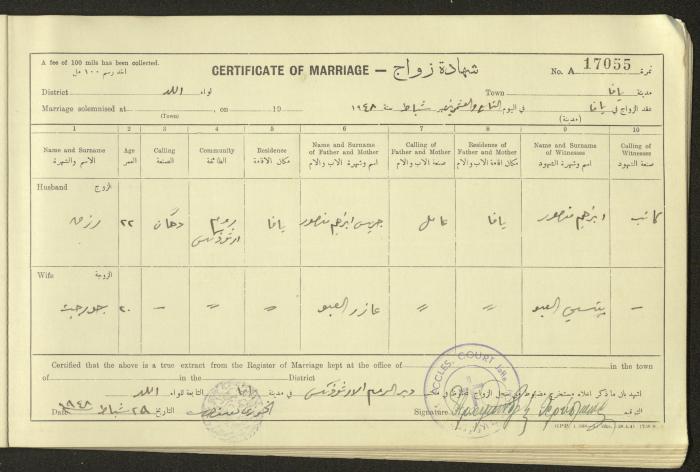 A fee of 100 mils has been collected.
اخذ رسم ١٠٠ مل
CERTIFICATE OF MARRIAGE — شهادة زواج
No. A 17055 نمرة
District لواء اللد
Town مدينة يافا
Marriage solemnised at , on 19
(Town)
عقد الزواج في يافا في اليوم التاسع والعشرين شباط سنة ١٩٤٨
(مدينة)
1 2 3 4 5 6 7 8 9 10
Name and Surname الاسم والشهرة
Age العمر
Calling الصنعة
Community الطائفة
Residence مكان الاقامة
Name and Surname of Father and Mother اسم وشهرة الاب والام
Calling of Father and Mother صنعة الاب والام
Residence of Father and Mother مكان اقامة الاب والام
Name and Surname of Witnesses اسم وشهرة الشهود
Calling of Witnesses صنعة الشهود
Husband الزوج
٢٢ دهان روم ارثوذكس يافا جريس ابرهيم منصور عامل يافا ابرهيم منصور كاتب
Wife الزوجة
جورجيت ٢٠ — " " عازر العبو " " العبو —
Certified that the above is a true extract from the Register of Marriage kept at the office of in the town
of in the District
اشهد بان ما ذكر اعلاه مستخرج سجل الزواج دير الروم الارثوذكس في مدينة يافا التابعة للواء اللد
Date التاريخ ٢٩ شباط ١٩٤٨
Signature التوقيع
ECCLES. COURT Jaffa